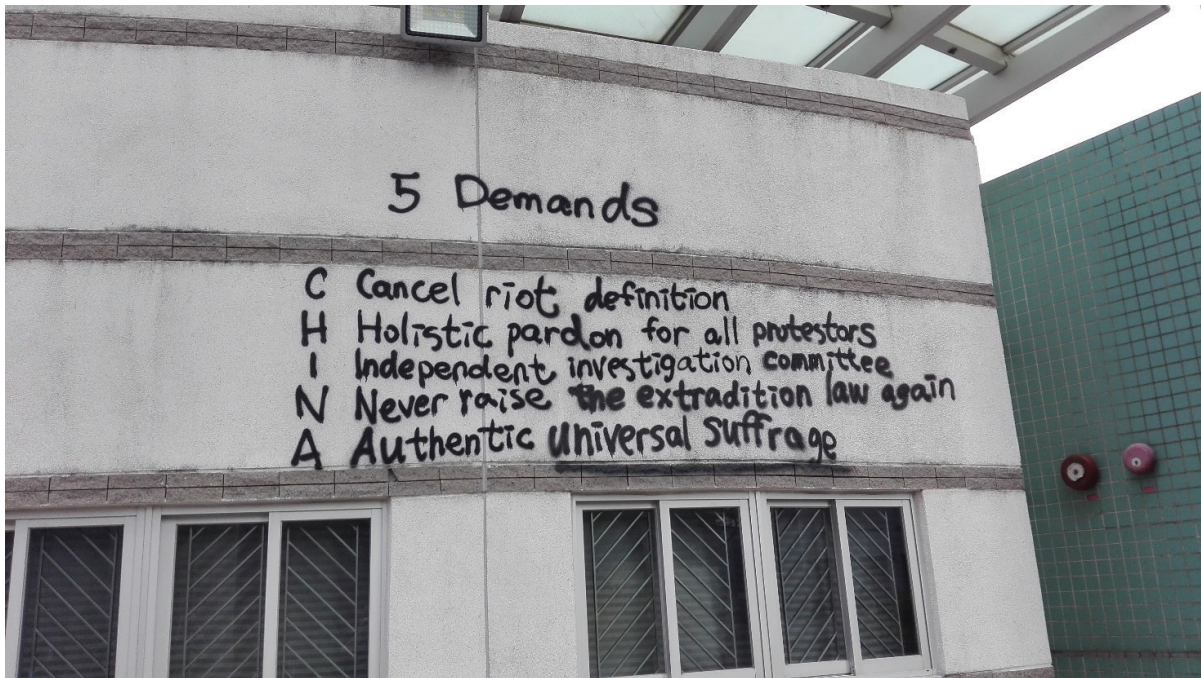 5 Demands
C Cancel riot definition
H Holistic pardon for all protestors
I Independent investigation committee
N Never raise the extradition law again
A Authentic universal suffrage